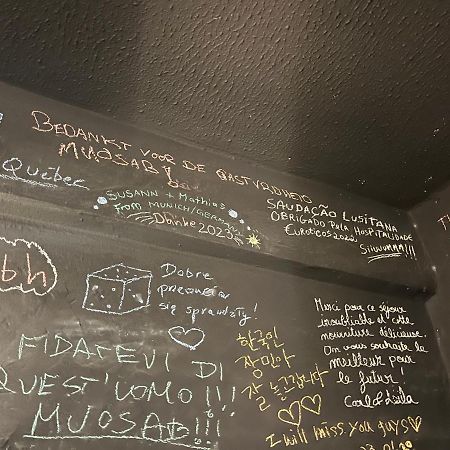 BEDANKST VOOR DE GASTVRIJHEID
MUOSAB!
Québec
SUSANN + Mathias
from MUNICH/GERMANY
Danke 2023
SAUDAÇÃO LUSITANA
OBRIGADO PELA HOSPITALIDADE
EUROTICOS 2022
SIIUUMMM!!!
bh
Dobre
się sprawdziły!
FIDATEVI DI
QUEST'UOMO!!!
MUOSAB!!!
한국인
장민아
잘 놀다갑니다
I will miss you guys
Merci pour ce séjour
inoubliable et cette
nourriture délicieuse.
On vous souhaite le
meilleur pour
le futur!